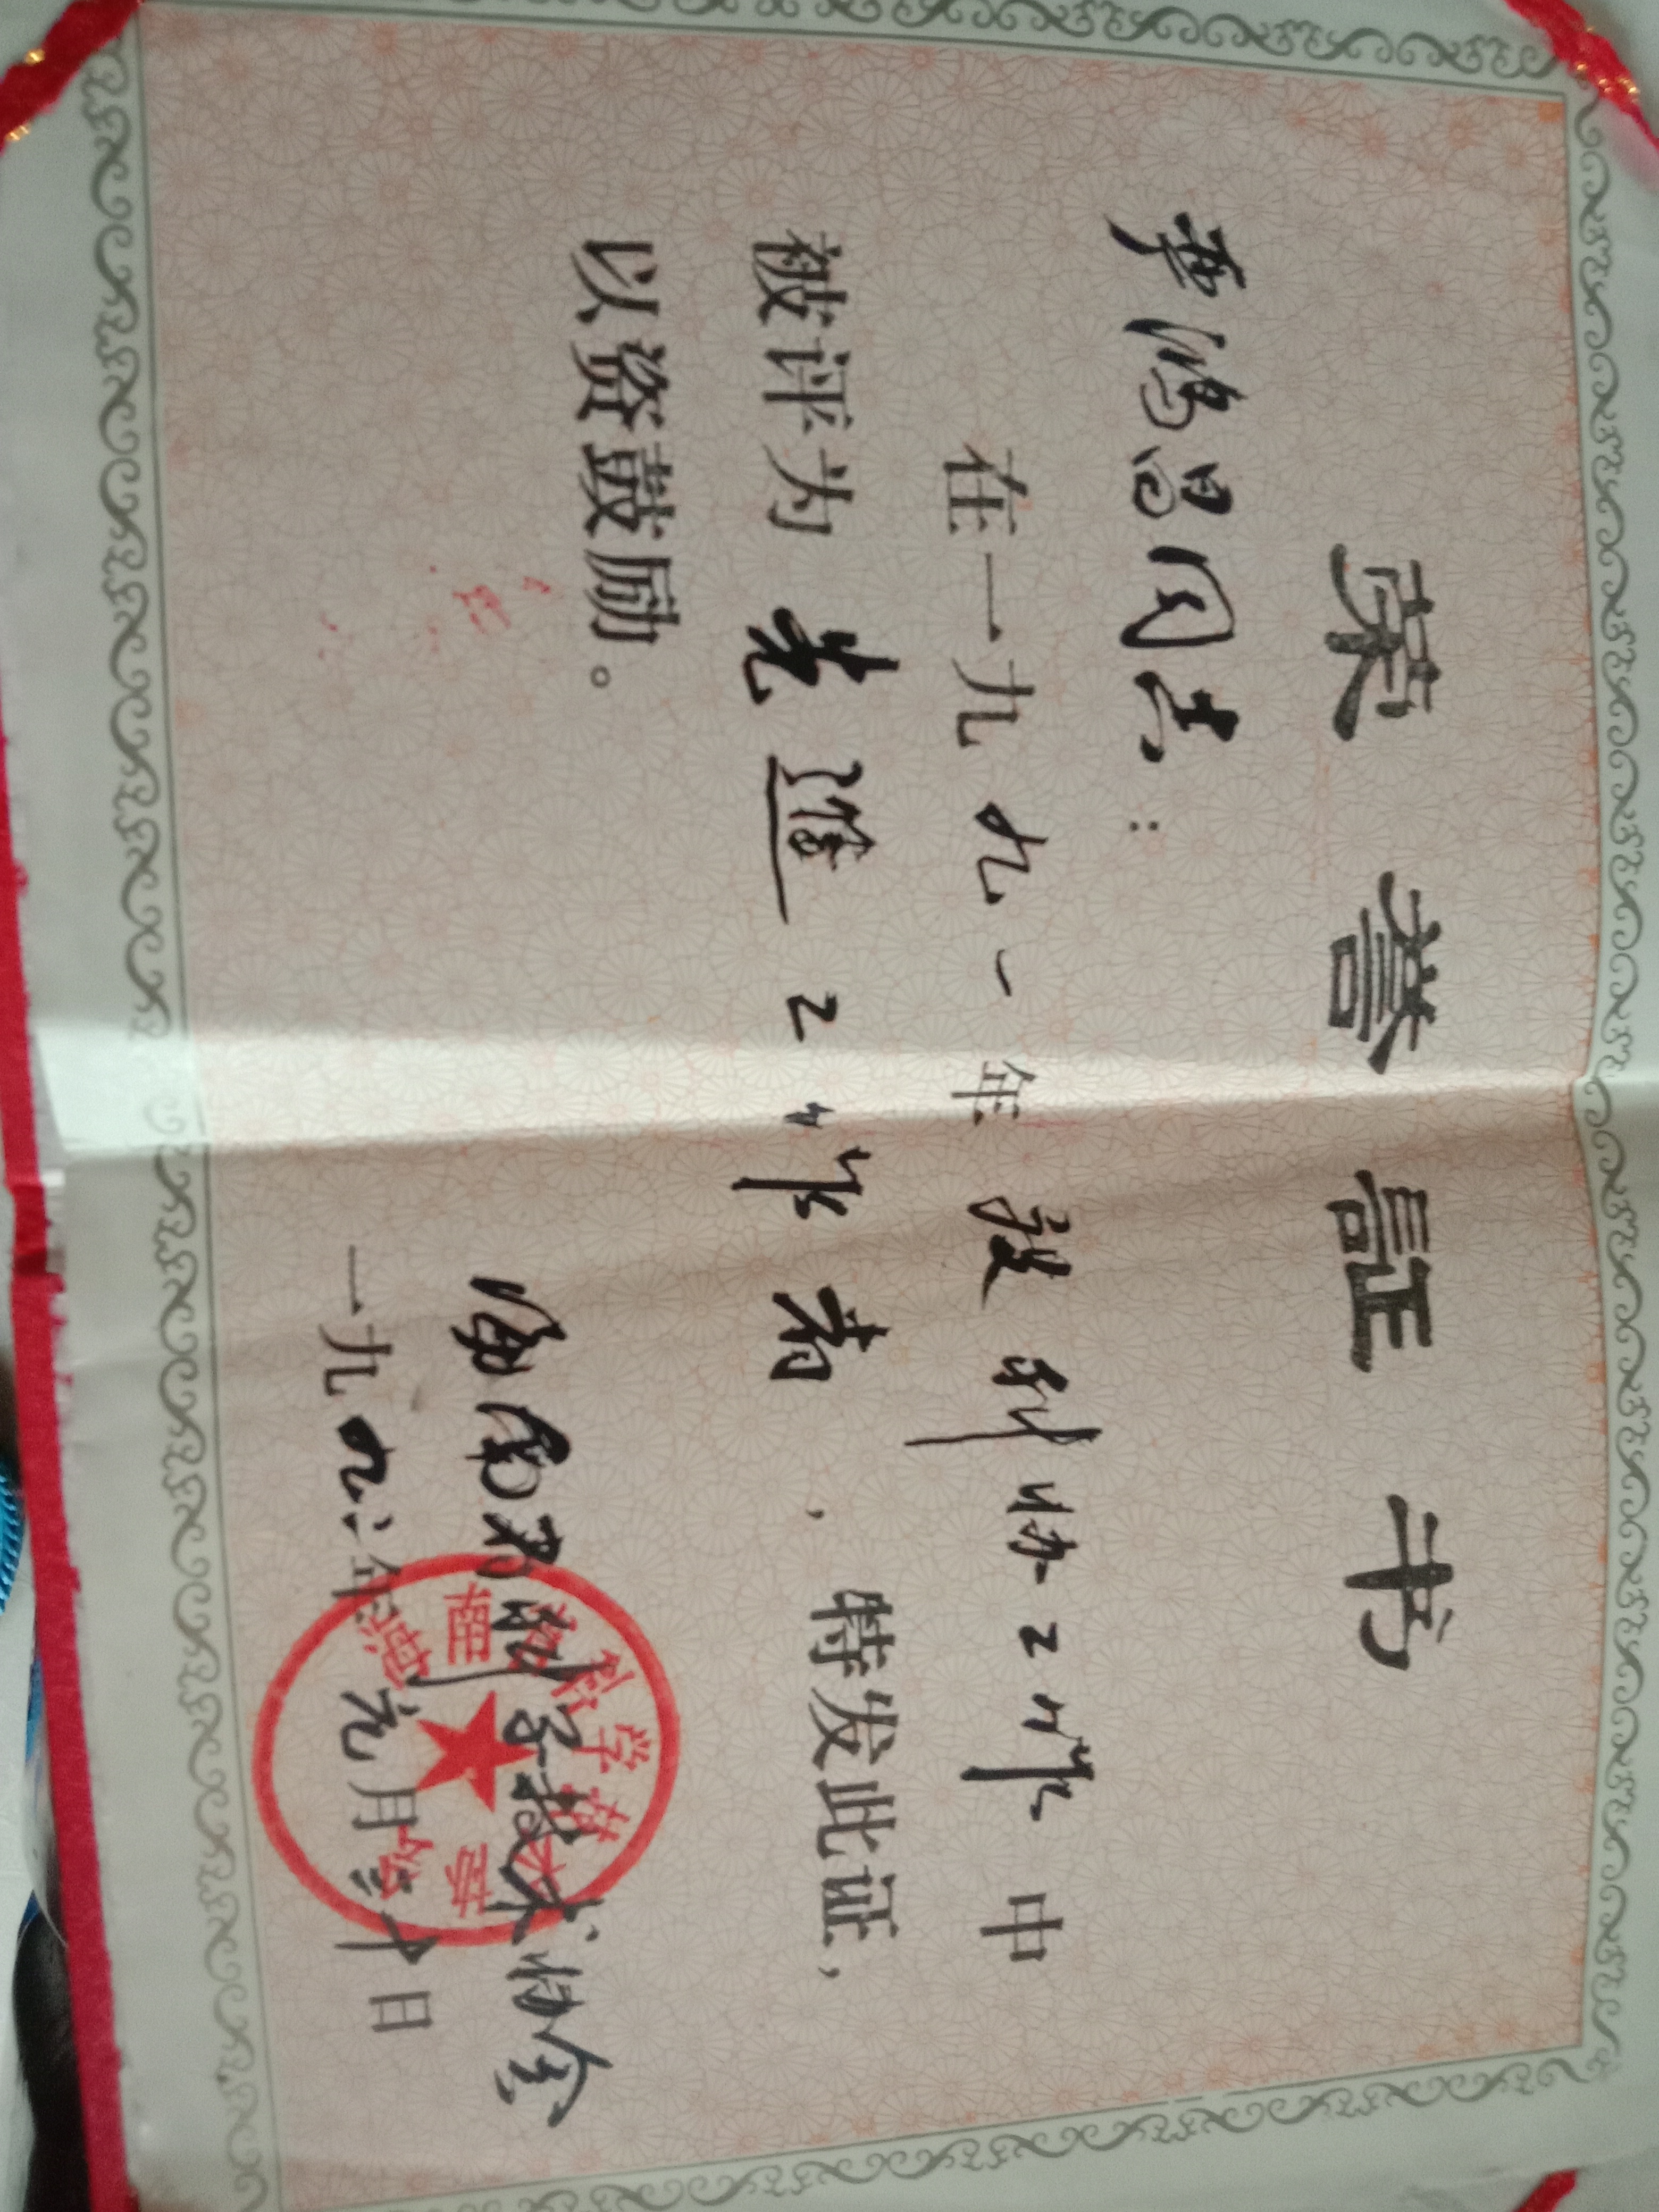 荣誉證书
鸿昌同志:
在一九九一年度科协工作中
被评为先進工作者,特发此证,
以资鼓励。
海南省科学技术协会
一九九二年元月十日
科学技术